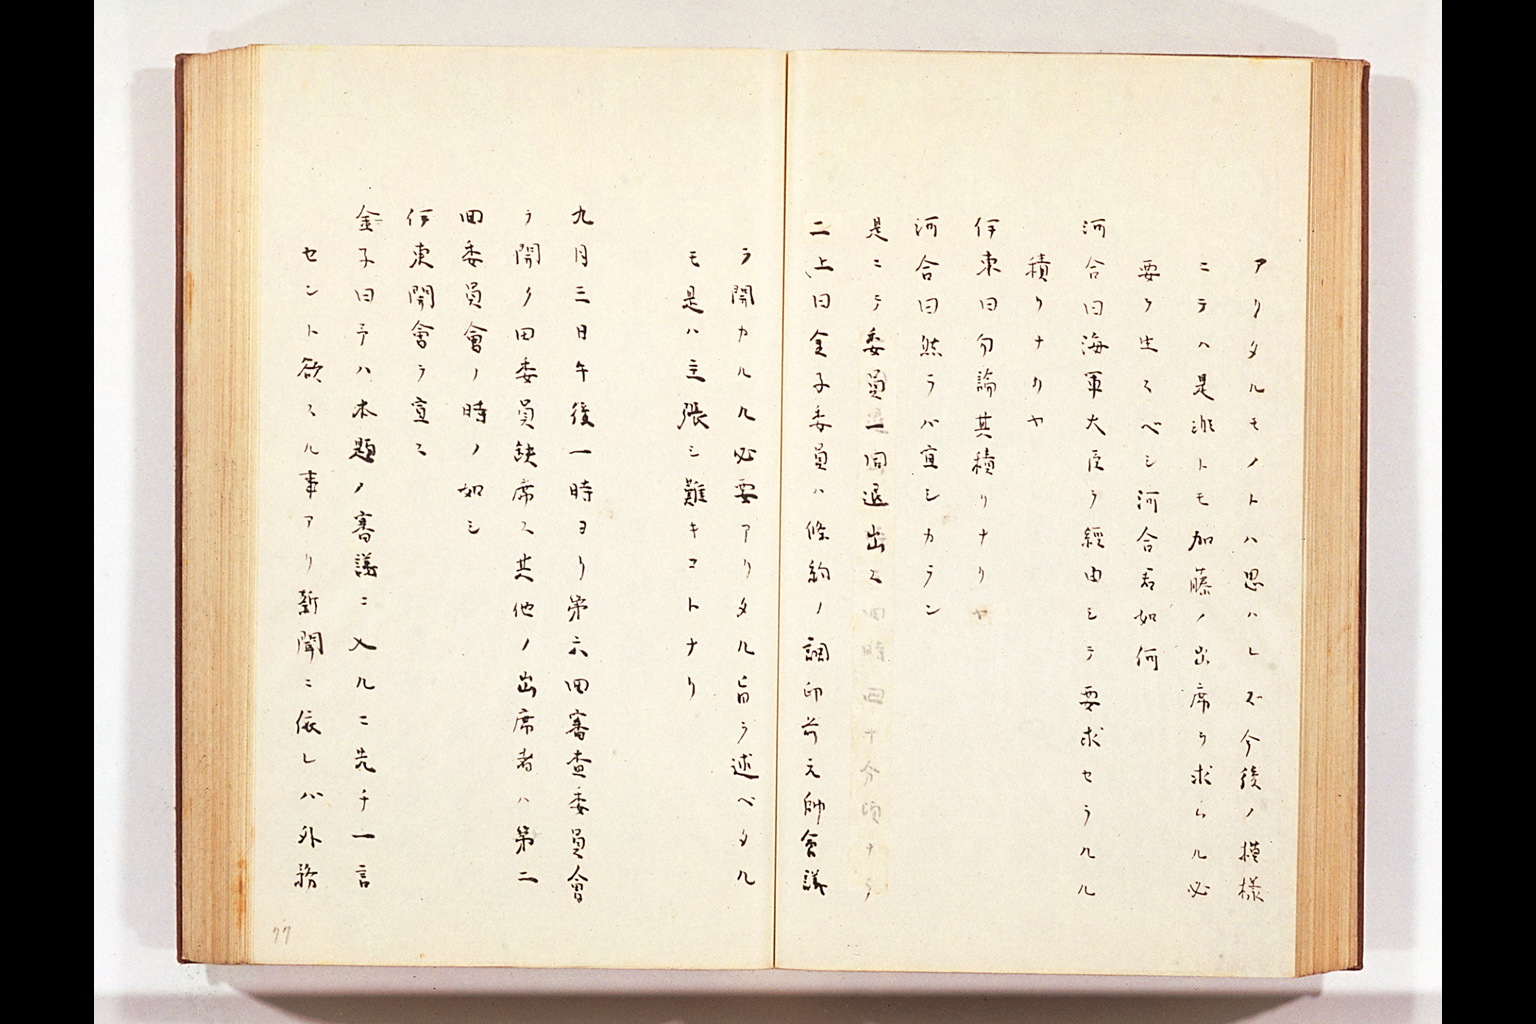 アリタルモノトハ思ハレズ今後ノ模様
ニテハ是非トモ加藤ノ出席ヲ求ムル必
要ヲ生スベシ河合君如何
河合曰海軍大臣ヲ経由シテ要求セラルル
積リナリヤ
伊東曰勿論其積リナリ
河合曰然ラバ宜シカラン
是ニテ委員一同退出ス四時四十分頃ナリ
二上曰金子委員ハ條約ノ調印前元帥會議
ヲ開カルル必要アリタル旨ヲ述ベタル
モ是ハ主張シ難キコトナリ
九月三日午後一時ヨリ第六回審査委員會
ヲ開ク田委員缺席ス其他ノ出席者ハ第二
回委員會ノ時ノ如シ
伊東開會ヲ宣ス
金子曰予ハ本題ノ審議ニ入ルニ先チ一言
セント欲スル事アリ新聞ニ依レバ外務
77